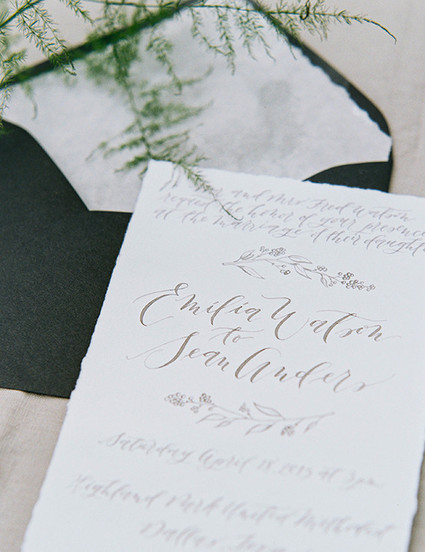 and Mrs Fred Watson
request the honor of your presence
at the marriage of their daughter
Emilia Watson
to
Sean Anders
Saturday April 18 2015 at 3pm
Highland Park United Methodist
Dallas